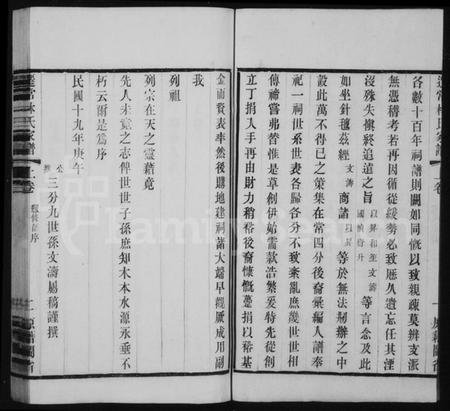 各數十百年祠譜則闕如同慨以致親疎莫辨支派
無憑稽考若再因循從緩勢必致歷久遺忘任其湮
沒殊失懷終追遠之旨
等言念及此
如坐針氊茲經 文濤 商諸 等於無法刱辦之中
設此萬不得已之策集在常四分後裔彙編人譜奉
祀一祠世系世表各歸各分不致紊亂庶幾世世相
傳禘嘗弗替惟是草創伊始需款浩繁爰特先從創
立丁捐入手再由財力稍裕後裔慷慨躉捐以裕基
金而資表率然後購地建祠諸大端早觀厥成用副
我
列祖
列宗在天之靈藉竟
先人未竟之志俾世世子孫庶知木本水源永垂不
朽云爾是為序
民國十九年庚午
三分九世孫文濤屬稿謹撰